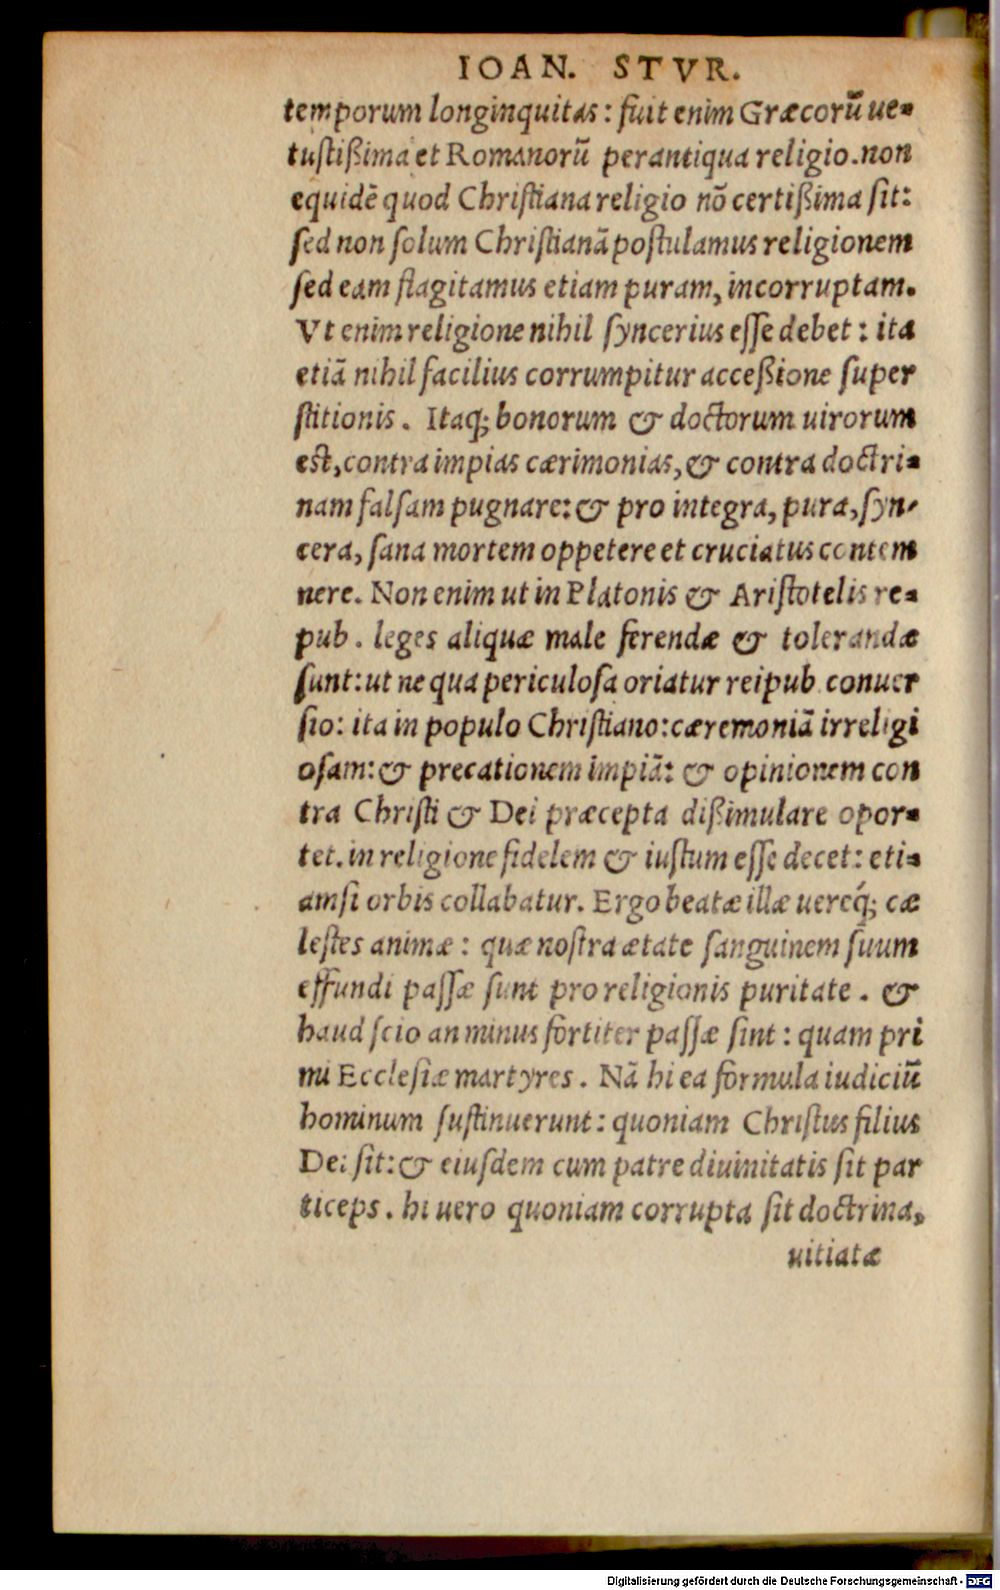 IOAN. STVR.
temporum longinquitas: fuit enim Græcorū ue-
tustißima et Romanorū perantiqua religio. non
equidē quod Christiana religio nō certißima sit:
sed non solum Christianā postulamus religionem
sed eam flagitamus etiam puram, incorruptam.
Vt enim religione nihil syncerius esse debet: ita
etiā nihil facilius corrumpitur acceßione super
stitionis. Itaq; bonorum & doctorum uirorum
est, contra impias cærimonias, & contra doctri-
nam falsam pugnare: & pro integra, pura, syn-
cera, sana mortem oppetere et cruciatus contem
nere. Non enim ut in Platonis & Aristotelis re-
pub. leges aliquæ male ferendæ & tolerandæ
sunt: ut ne qua periculosa oriatur reipub conuer
sio: ita in populo Christiano: cæremoniā irreligi
osam: & precationem impiā: & opinionem con
tra Christi & Dei præcepta dißimulare opor-
tet. in religione fidelem & iustum esse decet: eti-
amsi orbis collabatur. Ergo beatæ illæ uereq́; cæ
lestes animæ: quæ nostra ætate sanguinem suum
effundi passæ sunt pro religionis puritate. &
haud scio an minus fortiter passæ sint: quam pri
mi Ecclesiæ martyres. Nā hi ea formula iudiciū
hominum sustinuerunt: quoniam Christus filius
Dei sit: & eiusdem cum patre diuinitatis sit par
ticeps. hi uero quoniam corrupta sit doctrina,
uitiatæ
Digitalisierung gefördert durch die Deutsche Forschungsgemeinschaft - DFG